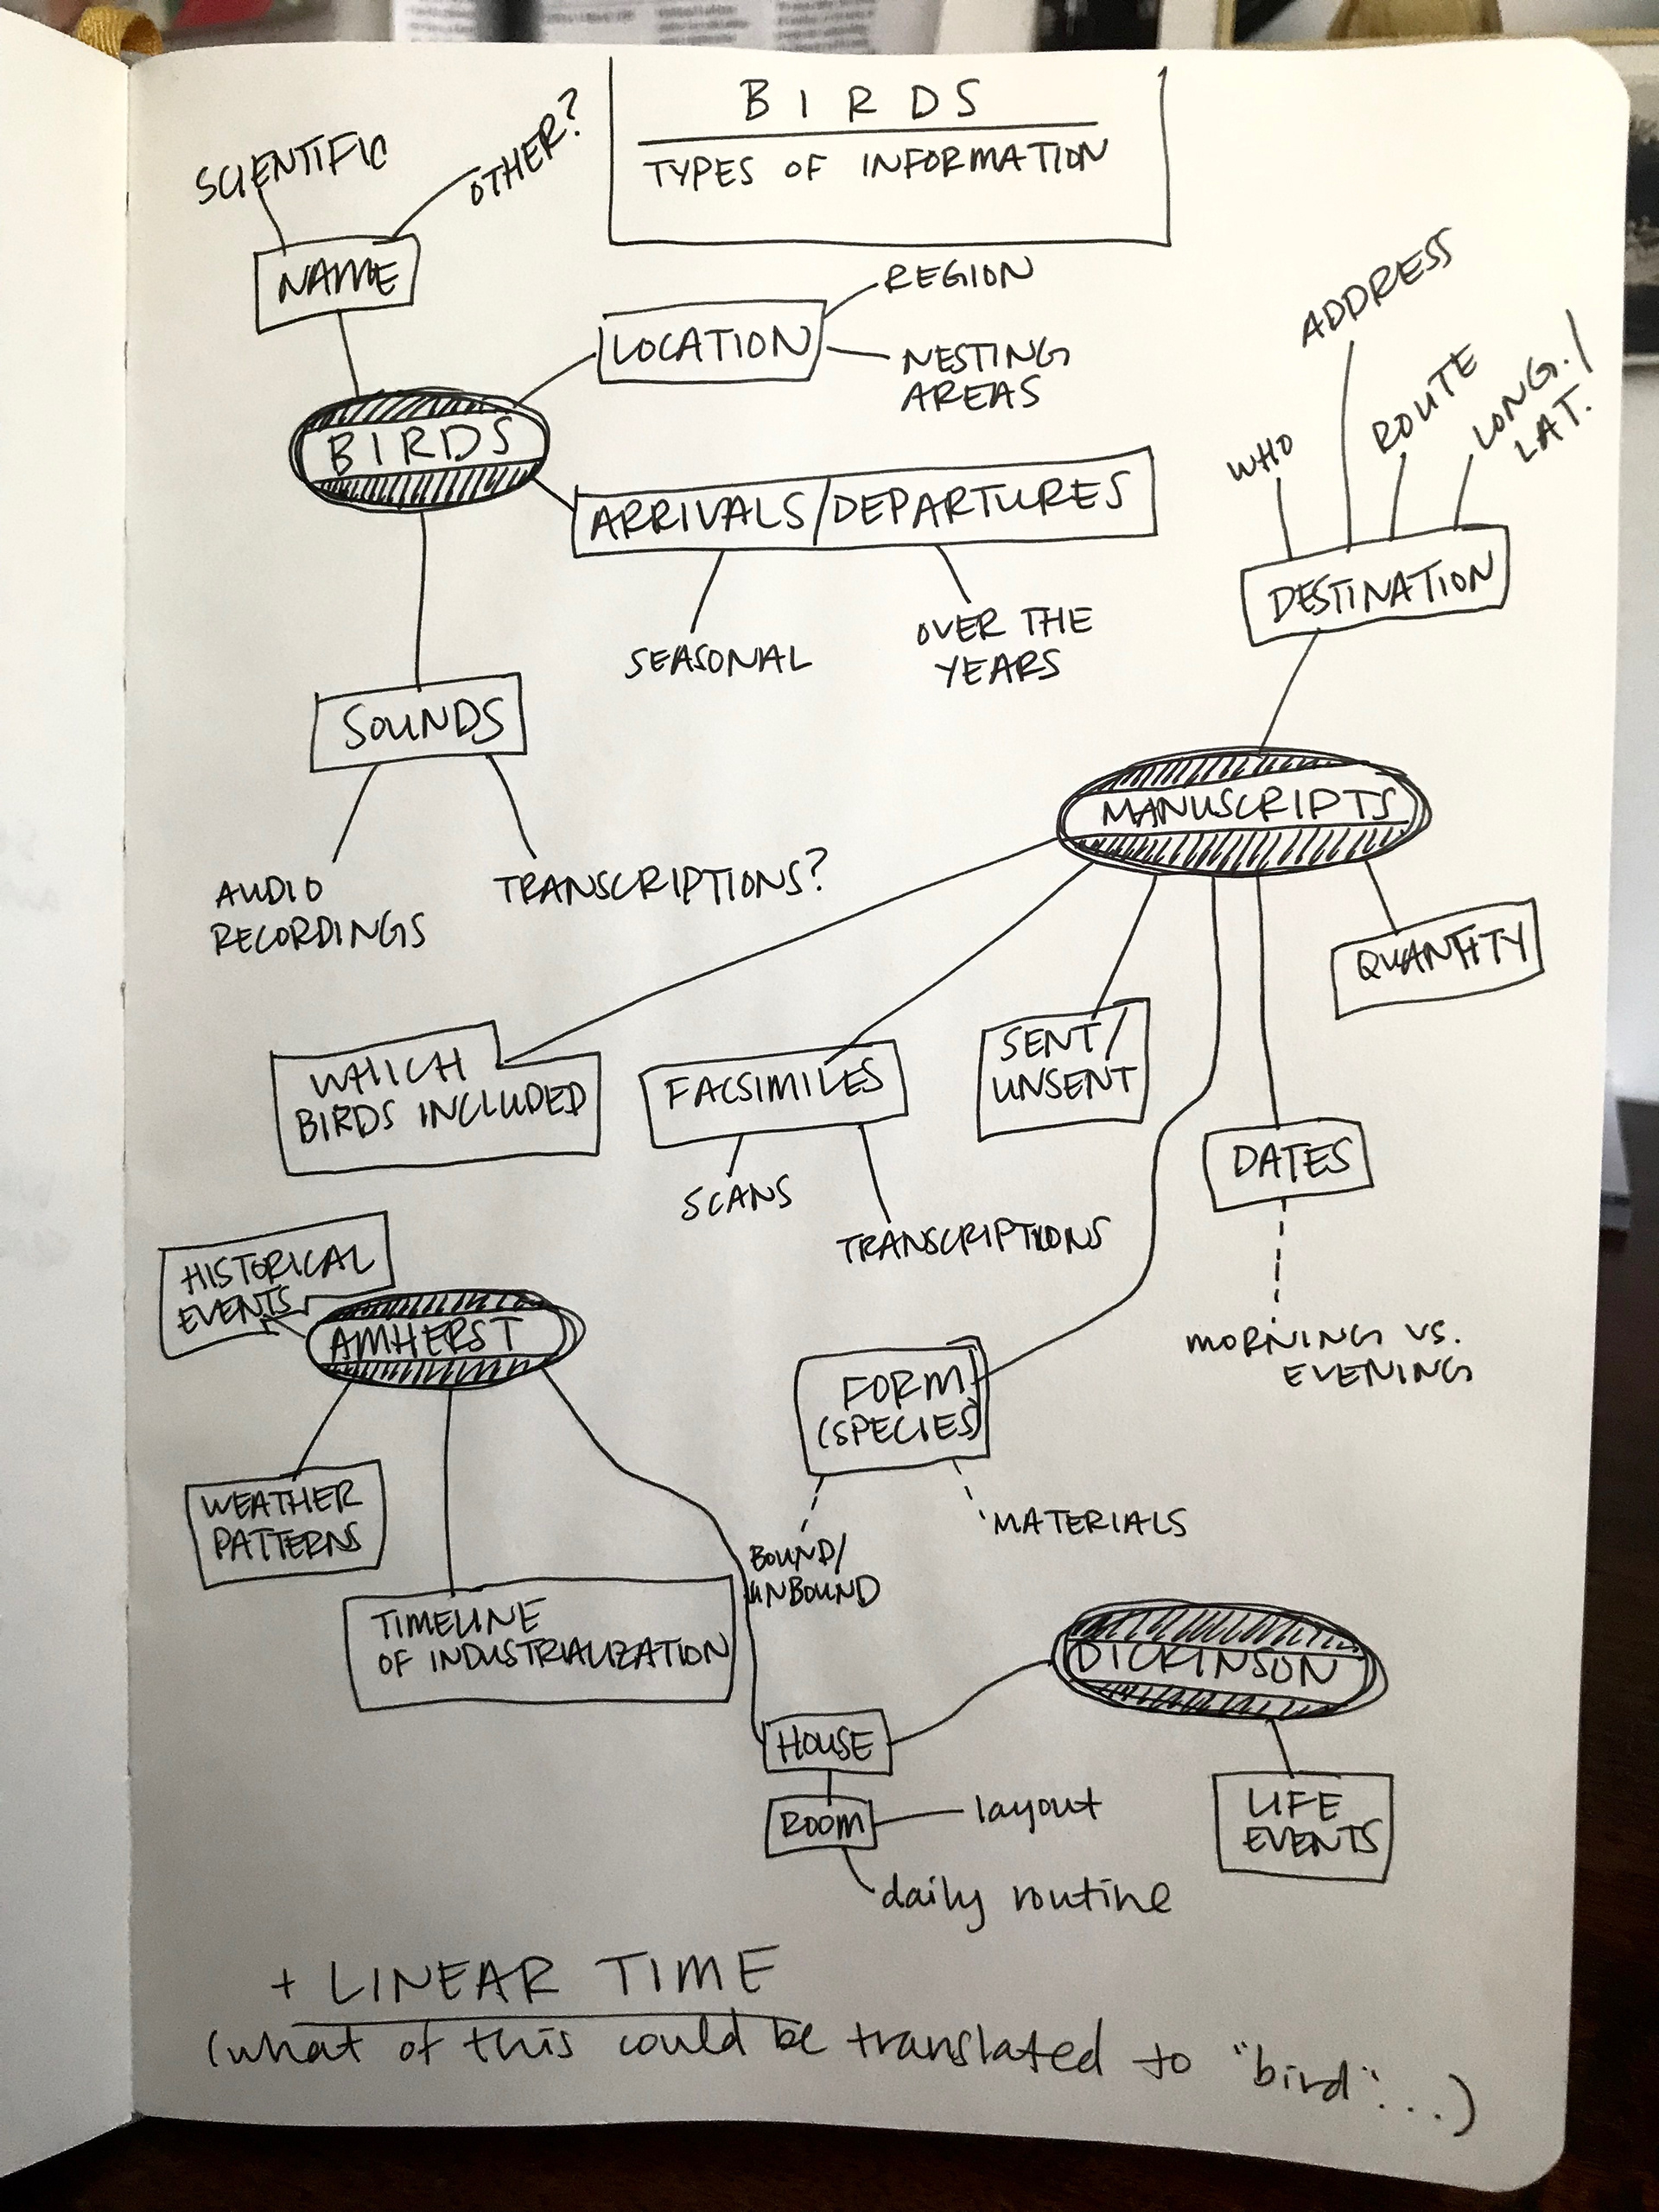 BIRDS
TYPES OF INFORMATION
SCIENTIFIC
OTHER?
NAME
LOCATION
REGION
NESTING
AREAS
BIRDS
ARRIVALS/DEPARTURES
SEASONAL
OVER THE
YEARS
SOUNDS
AUDIO
RECORDINGS
TRANSCRIPTIONS?
WHO
ADDRESS
ROUTE
LONG./
LAT.
DESTINATION
MANUSCRIPTS
QUANTITY
WHICH
BIRDS INCLUDED
FACSIMILES
SCANS
TRANSCRIPTIONS
SENT/
UNSENT
DATES
MORNING VS.
EVENING
FORM
(SPECIES)
BOUND/
UNBOUND
MATERIALS
HISTORICAL
EVENTS
AMHERST
WEATHER
PATTERNS
TIMELINE
OF INDUSTRIALIZATION
DICKINSON
HOUSE
ROOM
layout
daily routine
LIFE
EVENTS
+ LINEAR TIME
(what of this could be translated to "bird"...)